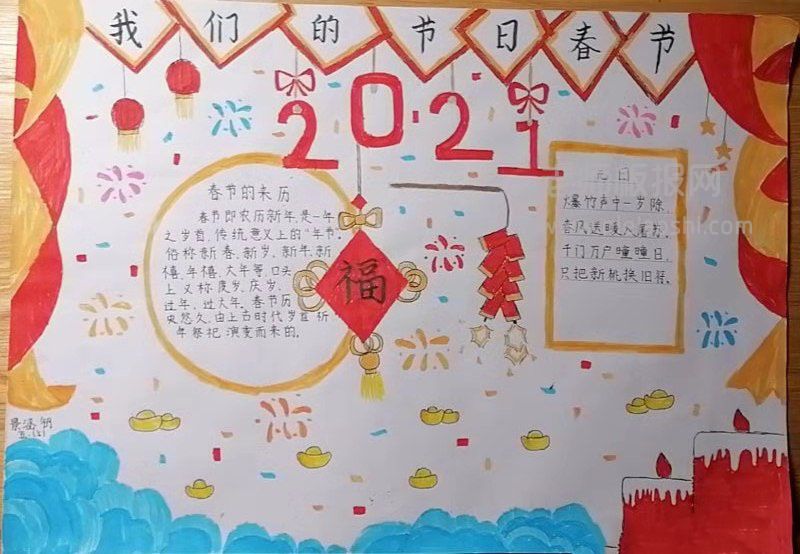 我们的节日春节
2021
春节的来历
春节即农历新年,是一年
之岁首、传统意义上的"年节"。
俗称新春、新岁、新年、新
禧、年禧、大年等,口头
上又称度岁、庆岁、
过年、过大年。春节历
史悠久,由上古时代岁首祈
年祭祀演变而来的。
福
元日
爆竹声中一岁除,
春风送暖入屠苏。
千门万户曈曈日,
只把新桃换旧符。